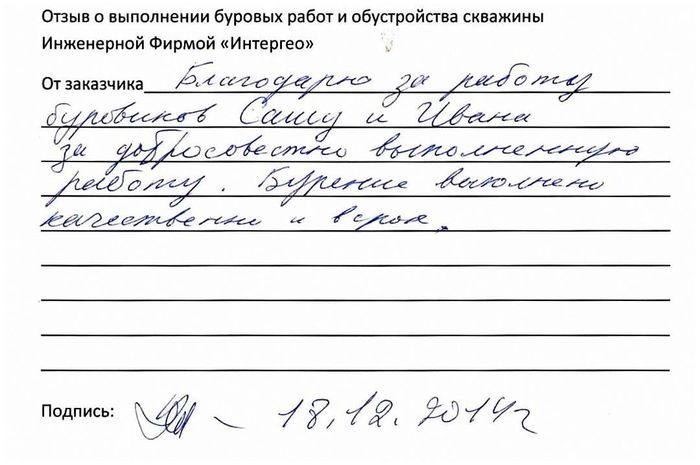 Отзыв о выполнении буровых работ и обустройства скважины
Инженерной Фирмой «Интергео»
От заказчика Благодарю за работу
буровиков Сашу и Ивана
за добросовестно выполненную
работу. Бурение выполнено
качественно и в срок.
Подпись: 18.12.2014г